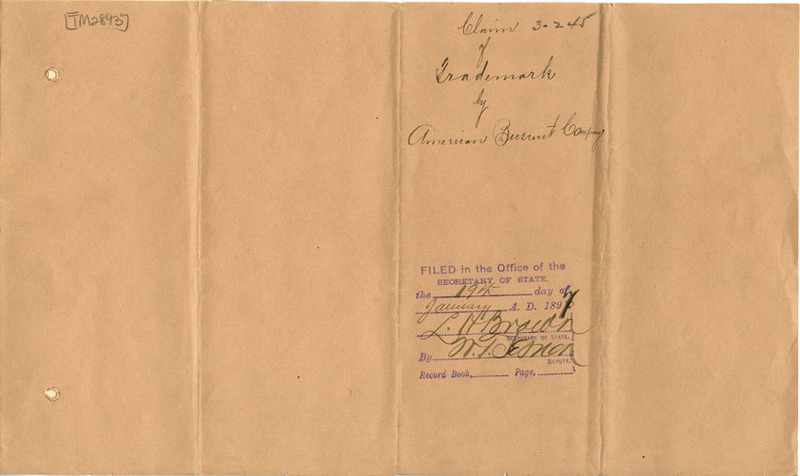 [TM2893]
Claim 3-245
of
Trademark
by
American Biscuit Company
FILED in the Office of the
SECRETARY OF STATE,
the 19th day of
January A. D. 1897
L. H. Brown
SECRETARY OF STATE.
By W. T.
DEPUTY.
Record Book, Page,